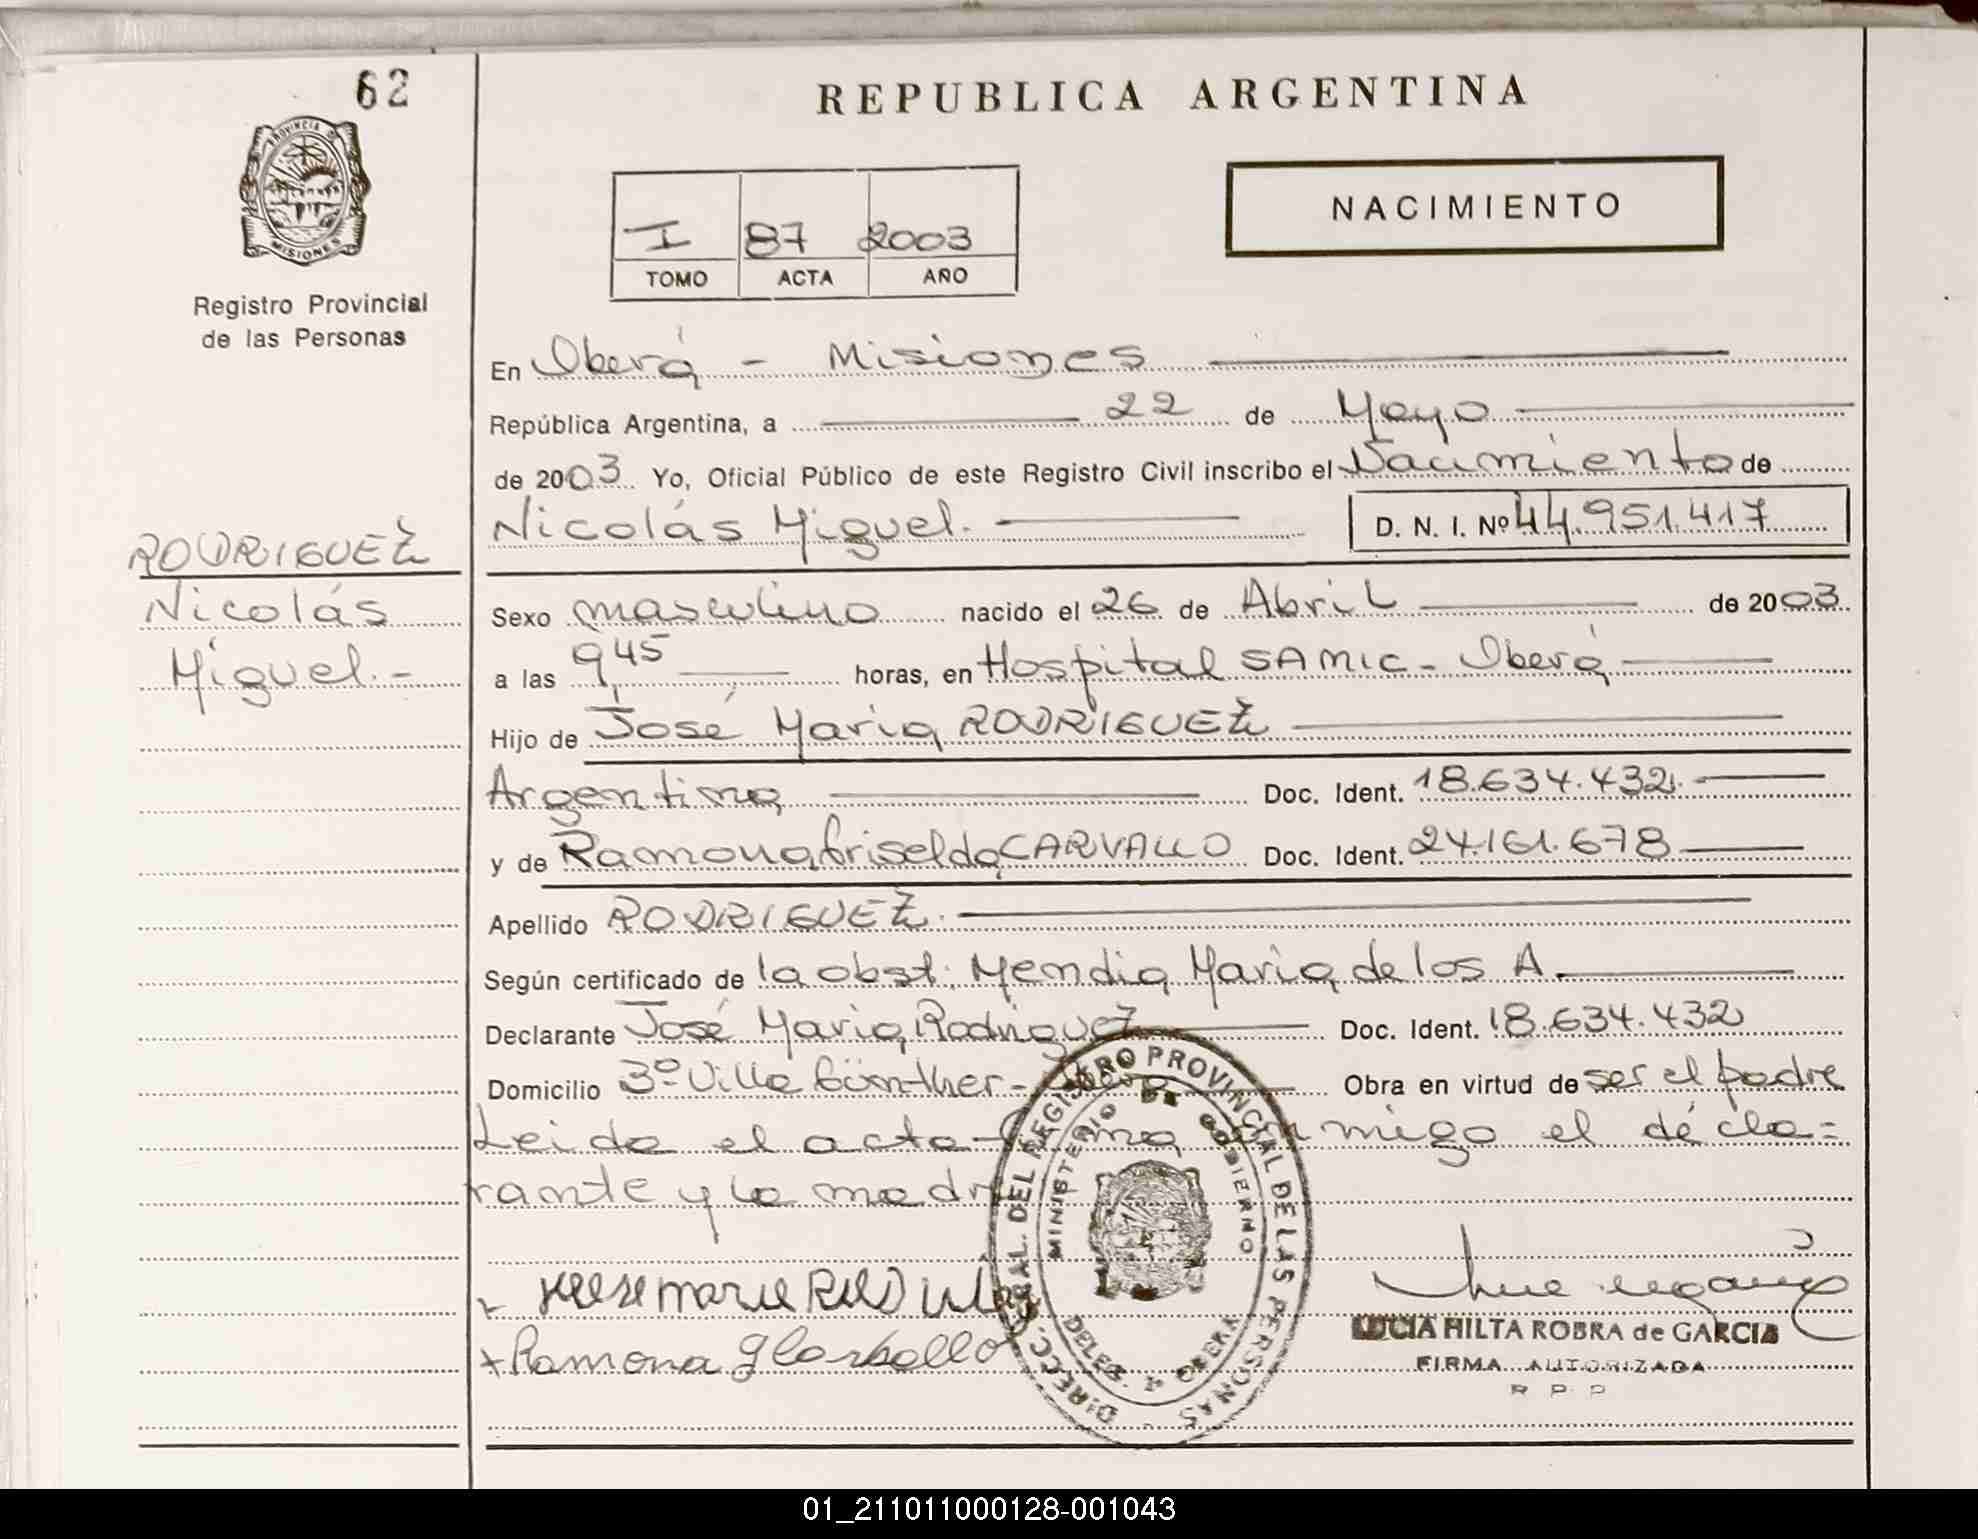 62
PROVINCIA DE
MISIONES
Registro Provincial
de las Personas
RODRIGUEZ
Nicolás
Miguel.-
REPUBLICA ARGENTINA
NACIMIENTO
I 87 2003
TOMO ACTA AÑO
En Oberá - Misiones
República Argentina, a 22 de Mayo
de 2003. Yo, Oficial Público de este Registro Civil inscribo el Nacimiento de
Nicolás Miguel. D. N. I. Nº 44.951.417
Sexo masculino nacido el 26 de Abril de 2003
a las 9,45 horas, en Hospital SAMIC - Oberá
Hijo de José Maria RODRIGUEZ
Argentina Doc. Ident. 18.634.432.
y de Ramona Griselda CARVALLO Doc. Ident. 24.161.678
Apellido RODRIGUEZ.
Según certificado de la obst. Mendia Maria de los A.
Declarante José Maria Rodriguez Doc. Ident. 18.634.432
Domicilio 3º Villa Günther - Oberá Obra en virtud de ser el padre
Leida el acta firma conmigo el décla=
rante y la madre
DIRECC. GRAL. DEL REGISTRO PROVINCIAL DE LAS PERSONAS
MINISTERIO DE GOBIERNO
DELEG. 1ª OBERA
Ramona G
LUCIA HILTA ROBRA de GARCIA
FIRMA AUTORIZADA
R P P
01_211011000128-001043